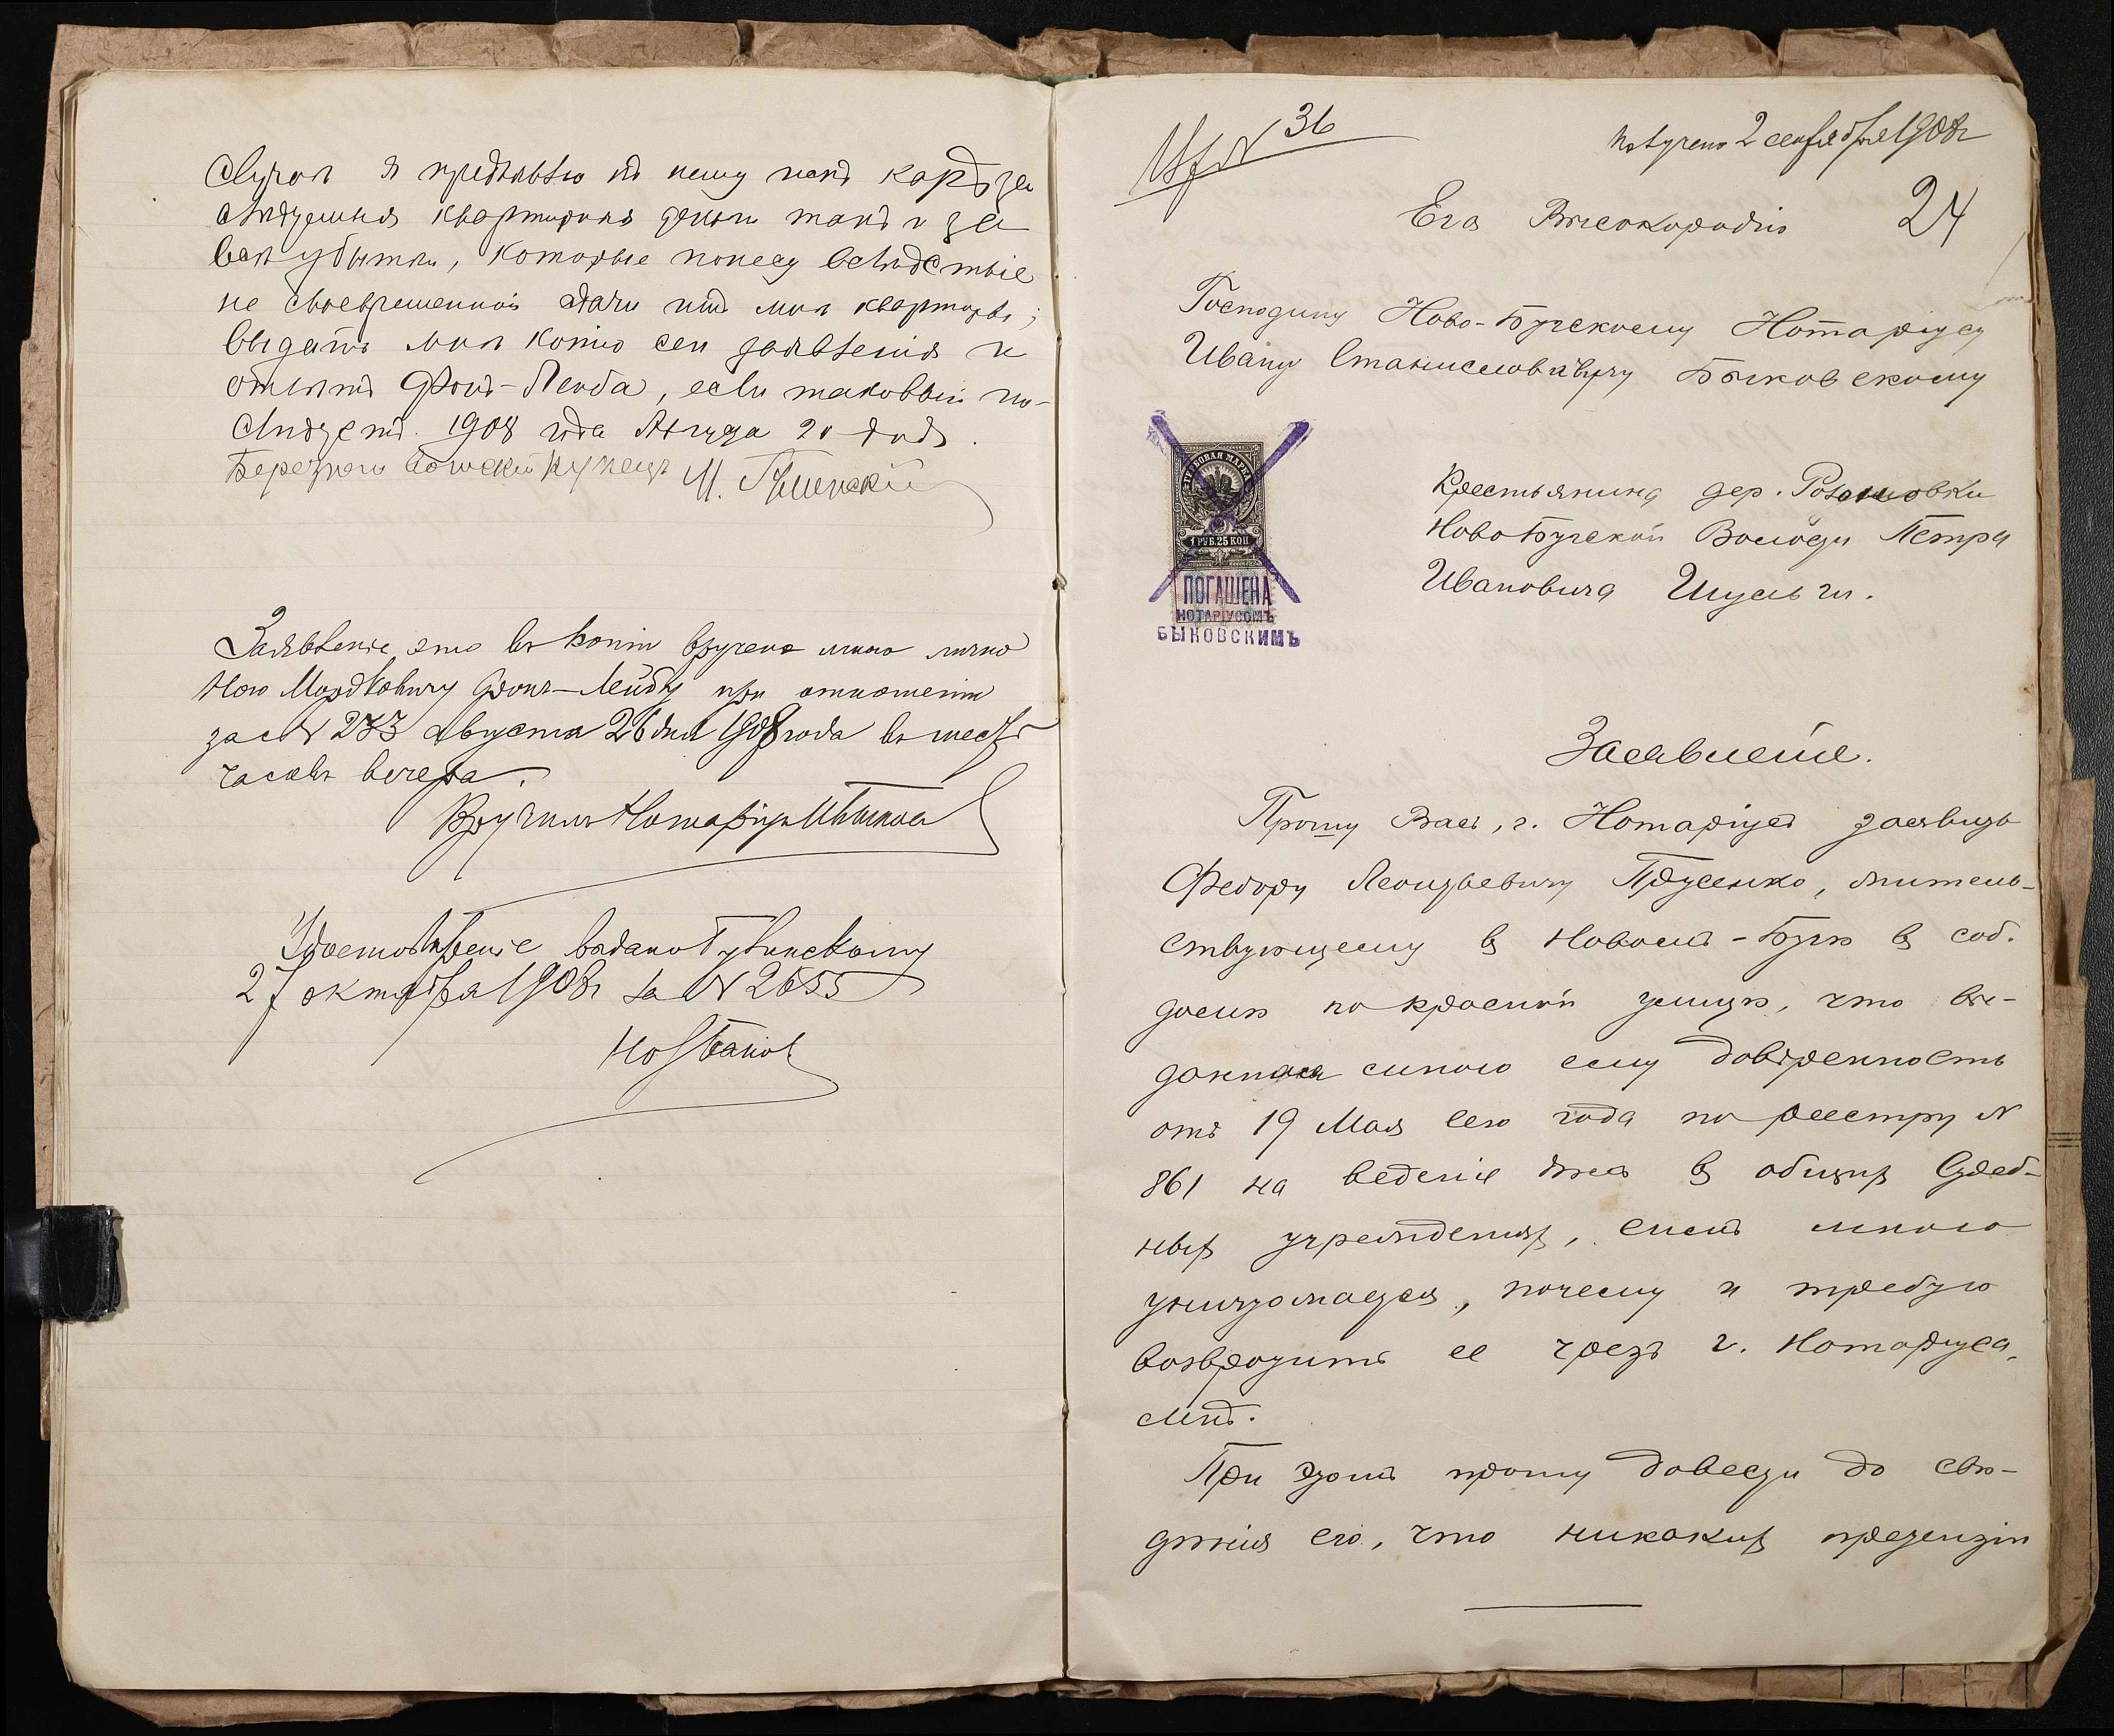 случаѣ я предъявлю къ нему искъ какъ за
слѣдуемыя квартирныя деньги такъ и за
всѣ убытки, которые понесу вслѣдствіе
не своевременной сдачи имъ мнѣ квартиры;
выдать мнѣ копію сего заявленія и
отвѣтъ Фонъ-Лейба, если таковый по-
слѣдуетъ. 1908 года Августа 20 дня.
купецъ М.
Заявленіе это въ копіи вручено мною лично
Ною Мордковичу Фонъ-Лейбу при отношеніи
за № 273 августа 26 дня 1908 года въ шесть
часовъ вечера.
Вручилъ Нотаріусъ
Удостовѣреніе выдано Губинскому
27 октября 1908г за № 2655
Нотаріусъ
№ 36
Получено 2 сентября 1908г
24
Его Высокородію
Господину Ново-Бугскому Нотаріусу
Ивану Станиславовичу Быковскому
ГЕРБОВАЯ МАРКА
1 РУБ. 25 КОП
ПОГАШЕНА
НОТАРІУСОМЪ
БЫКОВСКИМЪ
Крестьянина дер.
Ново Бугской Волости Петра
Ивановича Шульги.
Заявленіе.
Прошу Васъ, г. Нотаріусъ заявить
Федору Леонтьевичу Прусенко, житель-
ствующему въ Новомъ-Бугѣ въ соб.
домѣ по красной улицѣ, что вы-
данная мною ему довѣренность
отъ 19 Мая сего года по реестру №
861 на веденіе дѣла въ общихъ Судеб-
ныхъ учрежденіяхъ, симъ мною
уничтожается, почему и требую
возвратить ее чрезъ г. Нотаріуса,
мнѣ.
При этомъ прошу довести до свѣ-
дѣнія его, что никакихъ претензій